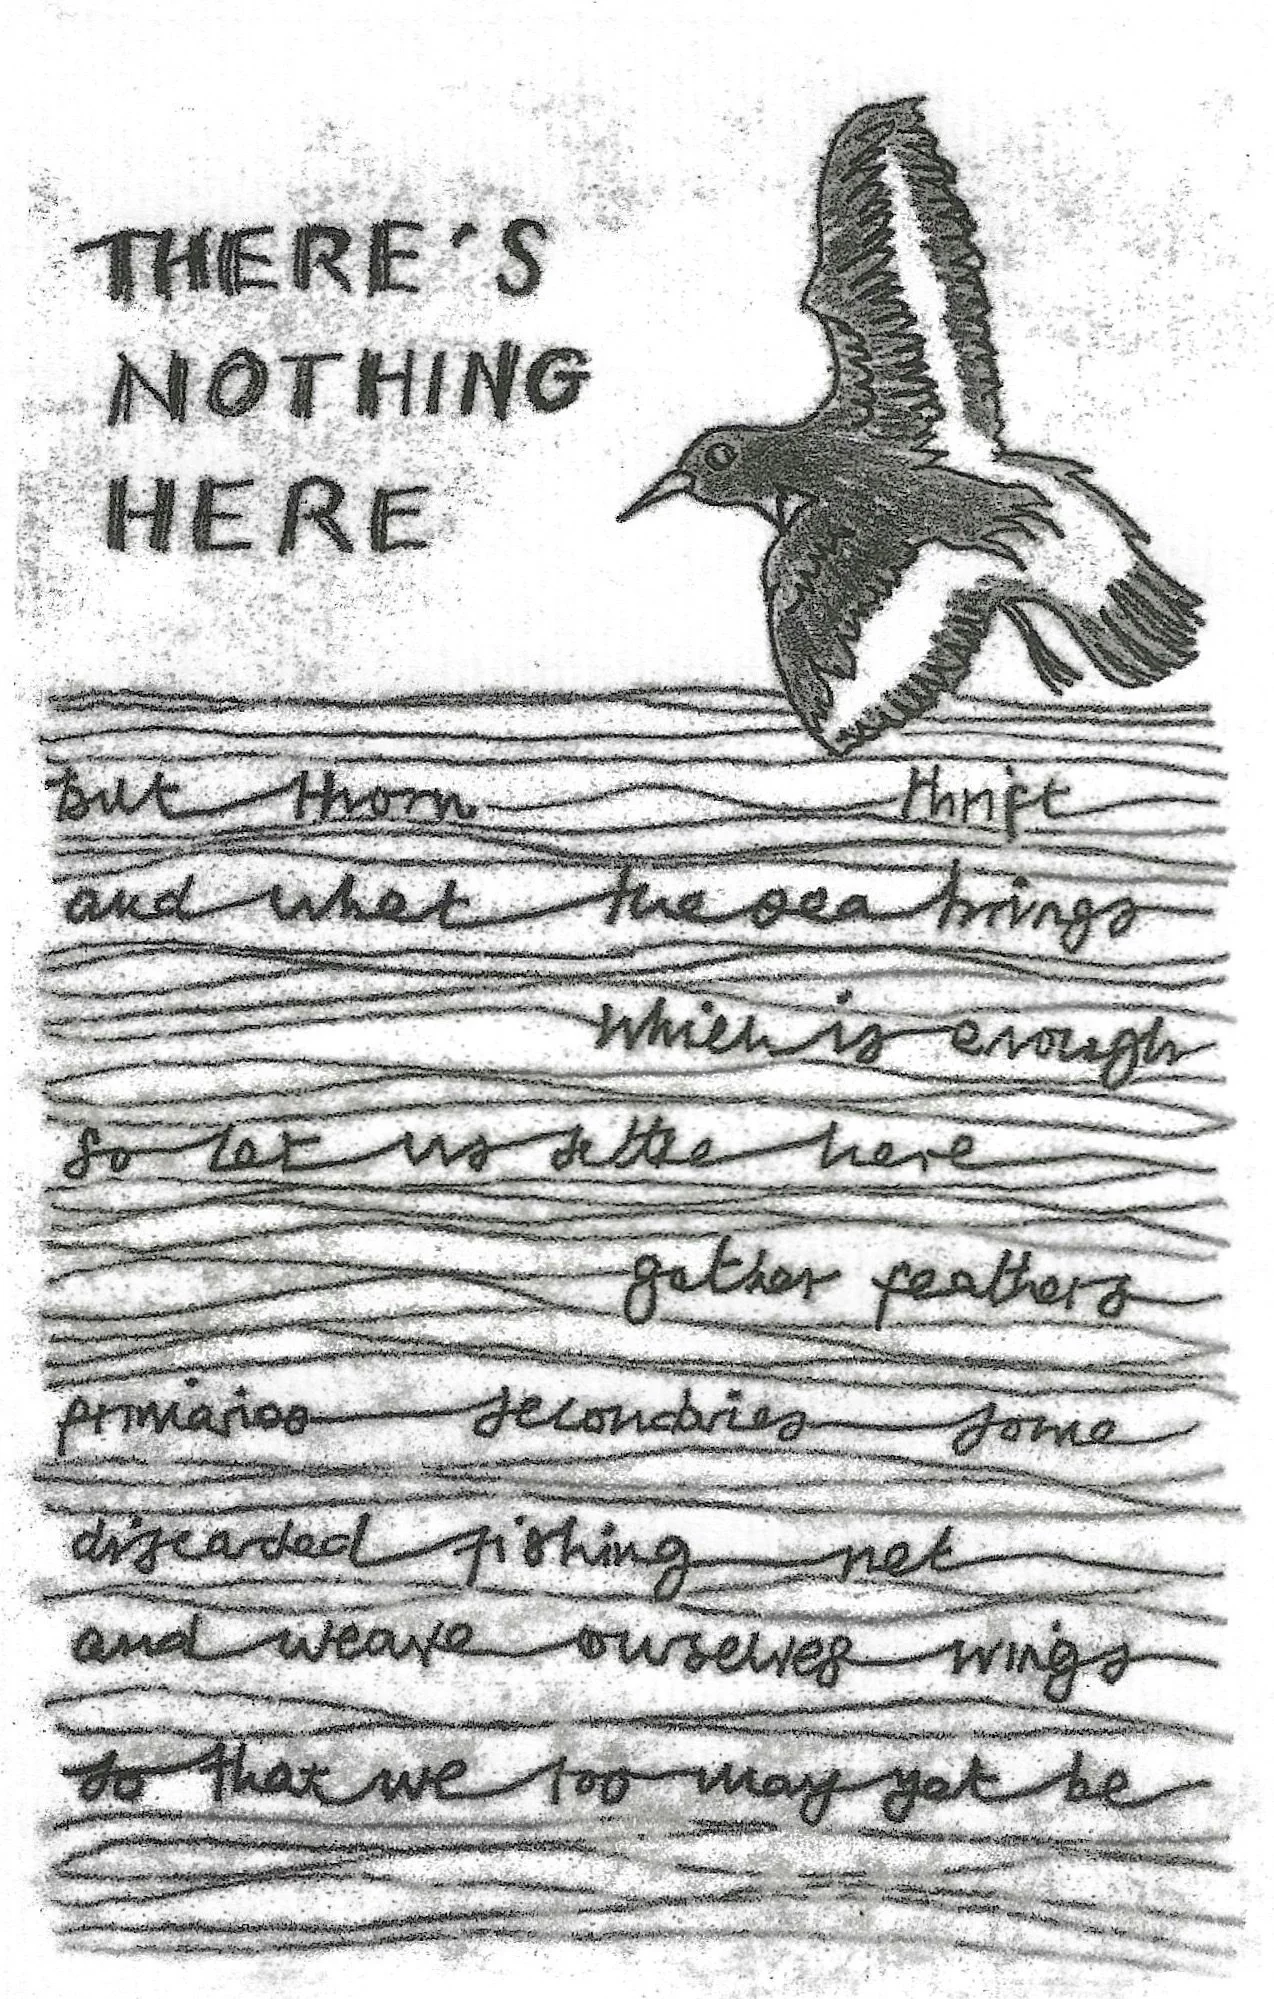 THERE'S
NOTHING
HERE
but thorn thrift
and what the sea brings
which is enough
so let us settle here
gather feathers
primaries secondaries some
discarded fishing net
and weave ourselves wings
so that we too may yet be